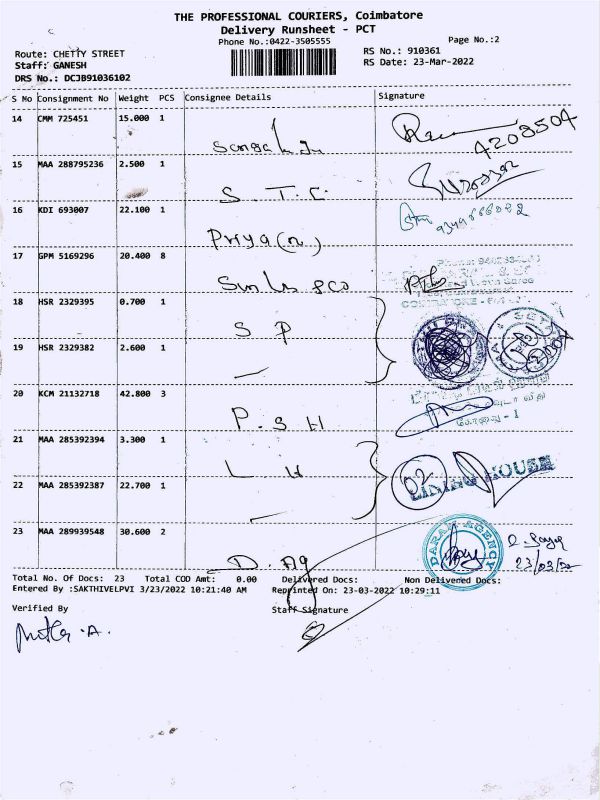 THE PROFESSIONAL COURIERS, Coimbatore
Delivery Runsheet - PCT
Phone No.:0422-3505555
Page No.:2
Route: CHETTY STREET
RS No.: 910361
Staff: GANESH
RS Date: 23-Mar-2022
DRS No.: DCJB91036102
S No Consignment No Weight PCS Consignee Details Signature
14 CMM 725451 15.000 1
4208504
15 MAA 288795236 2.500 1
S. T. C.
16 KDI 693007 22.100 1
Priya (n)
17 GPM 5169296 20.400 8
18 HSR 2329395 0.700 1
S P
19 HSR 2329382 2.600 1
20 KCM 21132718 42.800 3
P. S H
கோவை - 1
21 MAA 285392394 3.300 1
L H
LINING HOUSE
22 MAA 285392387 22.700 1
23 MAA 289939548 30.600 2
D. Ag
DARAN AGENCY
23/03/22
Total No. Of Docs: 23 Total COD Amt: 0.00 Delivered Docs: Non Delivered Docs:
Entered By :SAKTHIVELPVI 3/23/2022 10:21:40 AM Reprinted On: 23-03-2022 10:29:11
Verified By Staff Signature